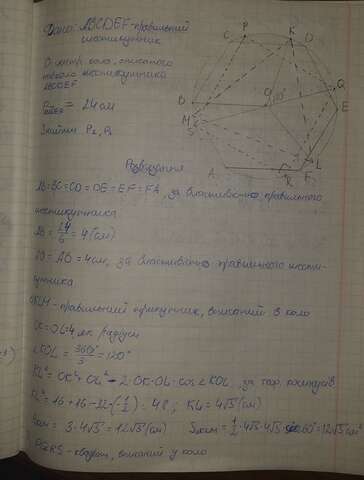 Дано: ABCDEF - правильний
шестикутник
O - центр кола, описаного
навколо шестикутника
ABCDEF
P = 24 см
Знайти P₂, P₃
C P K D
B O 120° Q
M E
S
A R F L
Розв'язання
AB=BC=CD=DE=EF=FA, за властивістю правильного
шестикутника
AB = 24/6 = 4 (см)
AO = AB = 4см, за властивістю правильного шести-
кутника
KLM - правильний трикутник, вписаний в коло
OK=OL=4, як радіуси
∠KOL = 360°/3 = 120°
KL² = OK² + OL² - 2·OK·OL·cos∠KOL, за теор. косинусів
KL² = 16 + 16 - 32·(-1/2) = 48; KL = 4√3 (см)
P = 3·4√3 = 12√3 (см) S = 1/2·4√3·4√3 60° = 12√3 см²
PQRS - квадрат, вписаний у коло